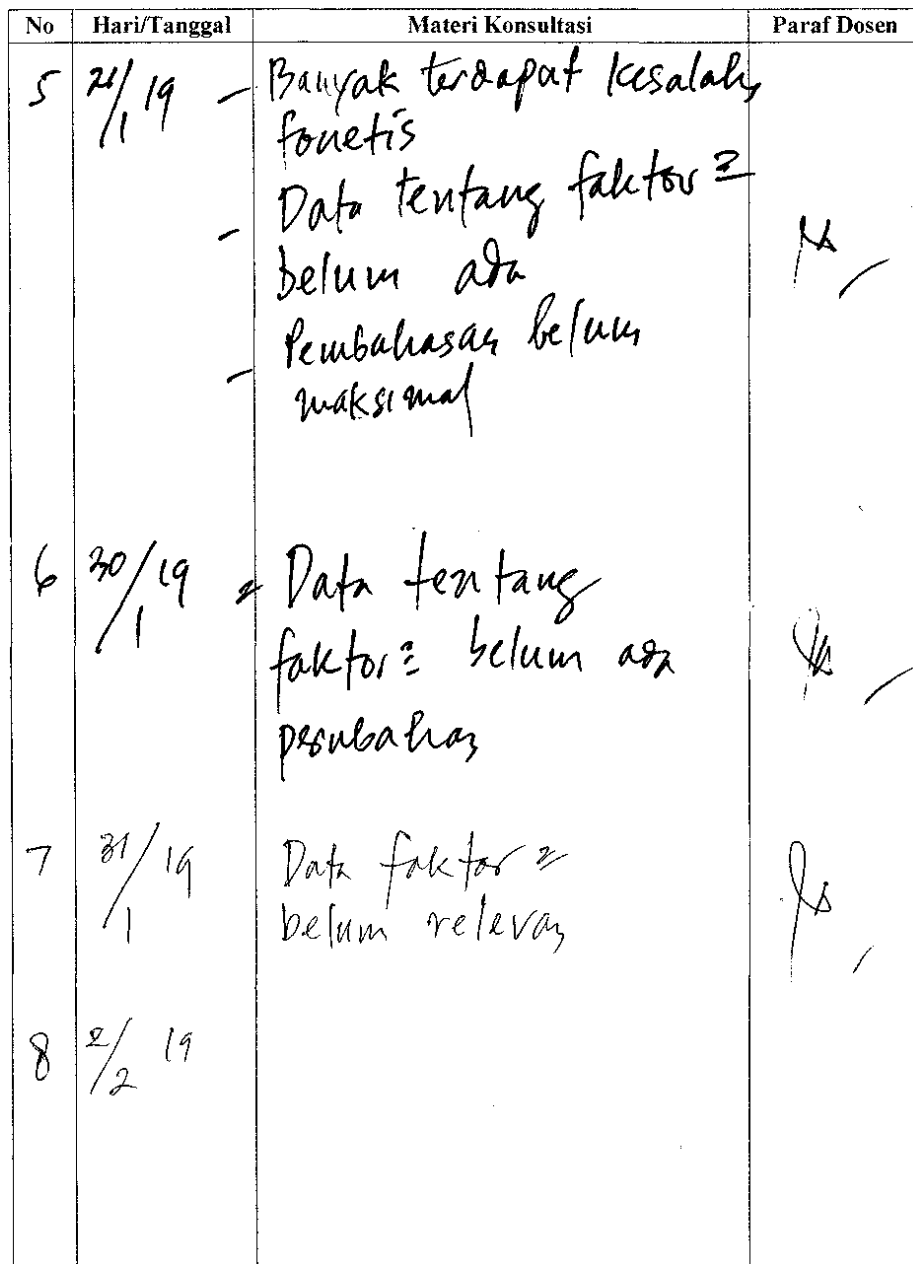 No Hari/Tanggal Materi Konsultasi Paraf Dosen
5 /1 19 - Banyak terdapat kesalahan
fonetis
- Data tentang faktor2
belum ada
- Pembahasan belum
maksimal
6 30/1 19 Data tentang
faktor2 belum ada
perubahan
7 31/1 19 Data faktor2
belum relevan
8 2/2 19